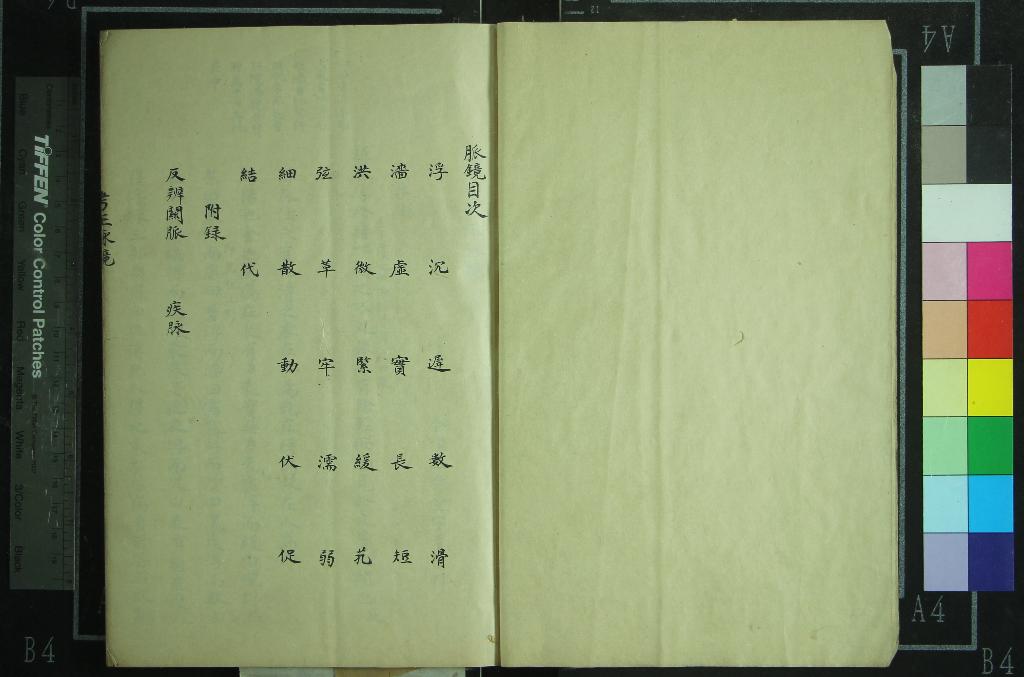 脈鏡目次
浮 沉 遲 數 滑
濇 虛 實 長 短
洪 微 緊 緩 芤
弦 革 牢 濡 弱
細 散 動 伏 促
結 代
附録
反辨關脈 疾脉
TIFFEN Color Control Patches
Blue Cyan Green Yellow Red Magenta White 3/Color Black
A4
A4
B4
B4